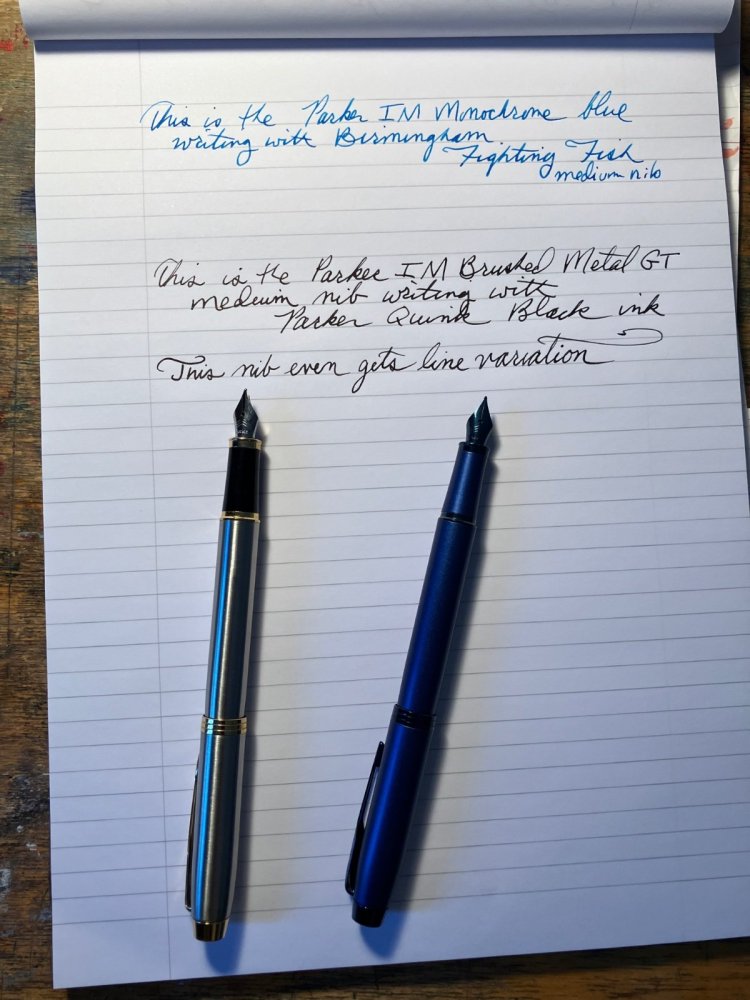 This is the Parker IM Monochrome blue
writing with Birmingham
Fighting Fish
medium nib
This is the Parker IM Brushed Metal GT
medium nib writing with
Parker Quink Black ink
This nib even gets line variation